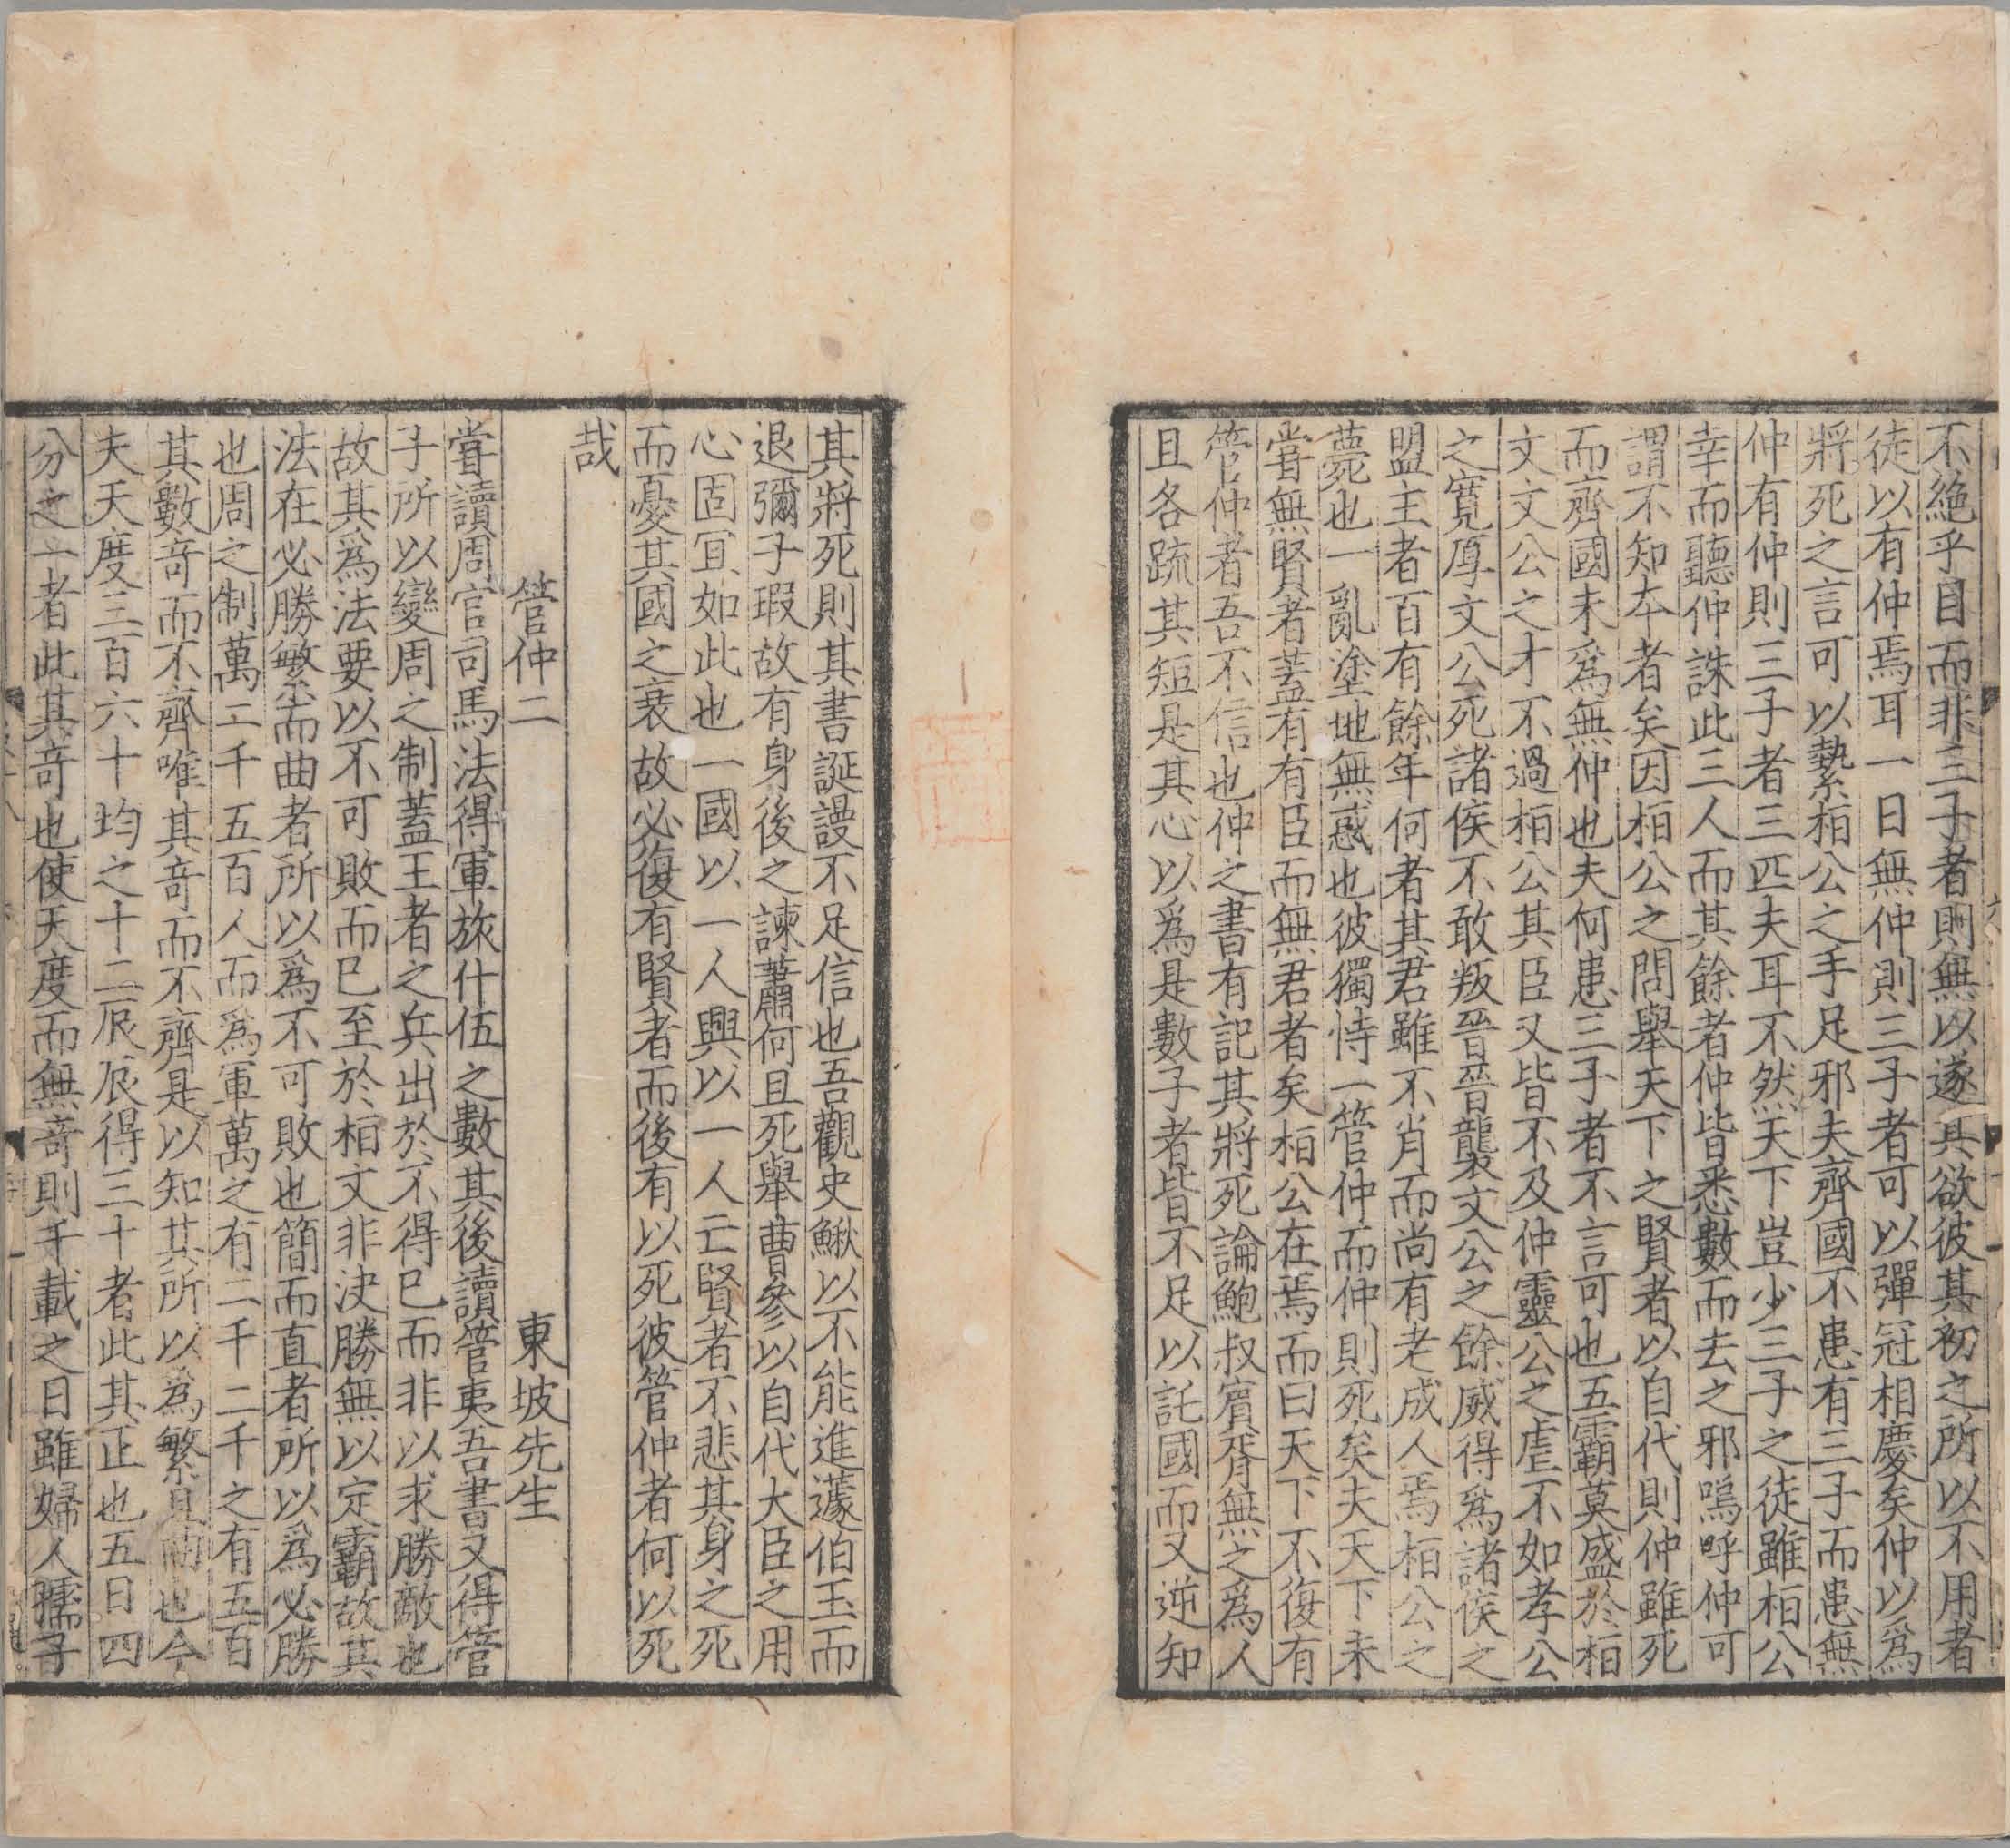 不絶乎目而非三子者則無以遂其欲彼其初之所以不用者
徒以有仲焉耳一日無仲則三子者可以彈冠相慶矣仲以爲
將死之言可以縶桓公之手足邪夫齊國不患有三子而患無
仲有仲則三子者三匹夫耳不然天下豈少三子之徒雖桓公
幸而聽仲誅此三人而其餘者仲皆悉數而去之邪嗚呼仲可
謂不知本者矣因桓公之問舉天下之賢者以自代則仲雖死
而齊國未爲無仲也夫何患三子者不言可也五霸莫盛於桓
文文公之才不過桓公其臣又皆不及仲靈公之虐不如孝公
之寬厚文公死諸侯不敢叛晉晉襲文公之餘威得爲諸侯之
盟主者百有餘年何者其君雖不肖而尚有老成人焉桓公之
薨也一亂塗地無惑也彼獨恃一管仲而仲則死矣夫天下未
嘗無賢者蓋有有臣而無君者矣桓公在焉而曰天下不復有
管仲者吾不信也仲之書有記其將死論鮑叔賓胥無之爲人
且各疏其短是其心以爲是數子者皆不足以託國而又逆知
其將死則其書誕謾不足信也吾觀史鰍以不能進蘧伯玉而
退彌子瑕故有身後之諫蕭何且死舉曹參以自代大臣之用
心固冝如此也一國以一人興以一人亡賢者不悲其身之死
而憂其國之衰故必復有賢者而後有以死彼管仲者何以死
哉
管仲二 東坡先生
嘗讀周官司馬法得軍旅什伍之數其後讀管夷吾書又得管
子所以變周之制蓋王者之兵出於不得已而非以求勝敵也
故其爲法要以不可敗而已至於桓文非決勝無以定霸故其
法在必勝繁而曲者所以爲不可敗也簡而直者所以爲必勝
也周之制萬二千五百人而爲軍萬之有二千二千之有五百
其數竒而不齊唯其竒而不齊是以知其所以爲繁且曲也今
夫天度三百六十均之十二辰辰得三十者此其正也五日四
分之一者此其竒也使天度而無竒則千載之日雖婦人孺子